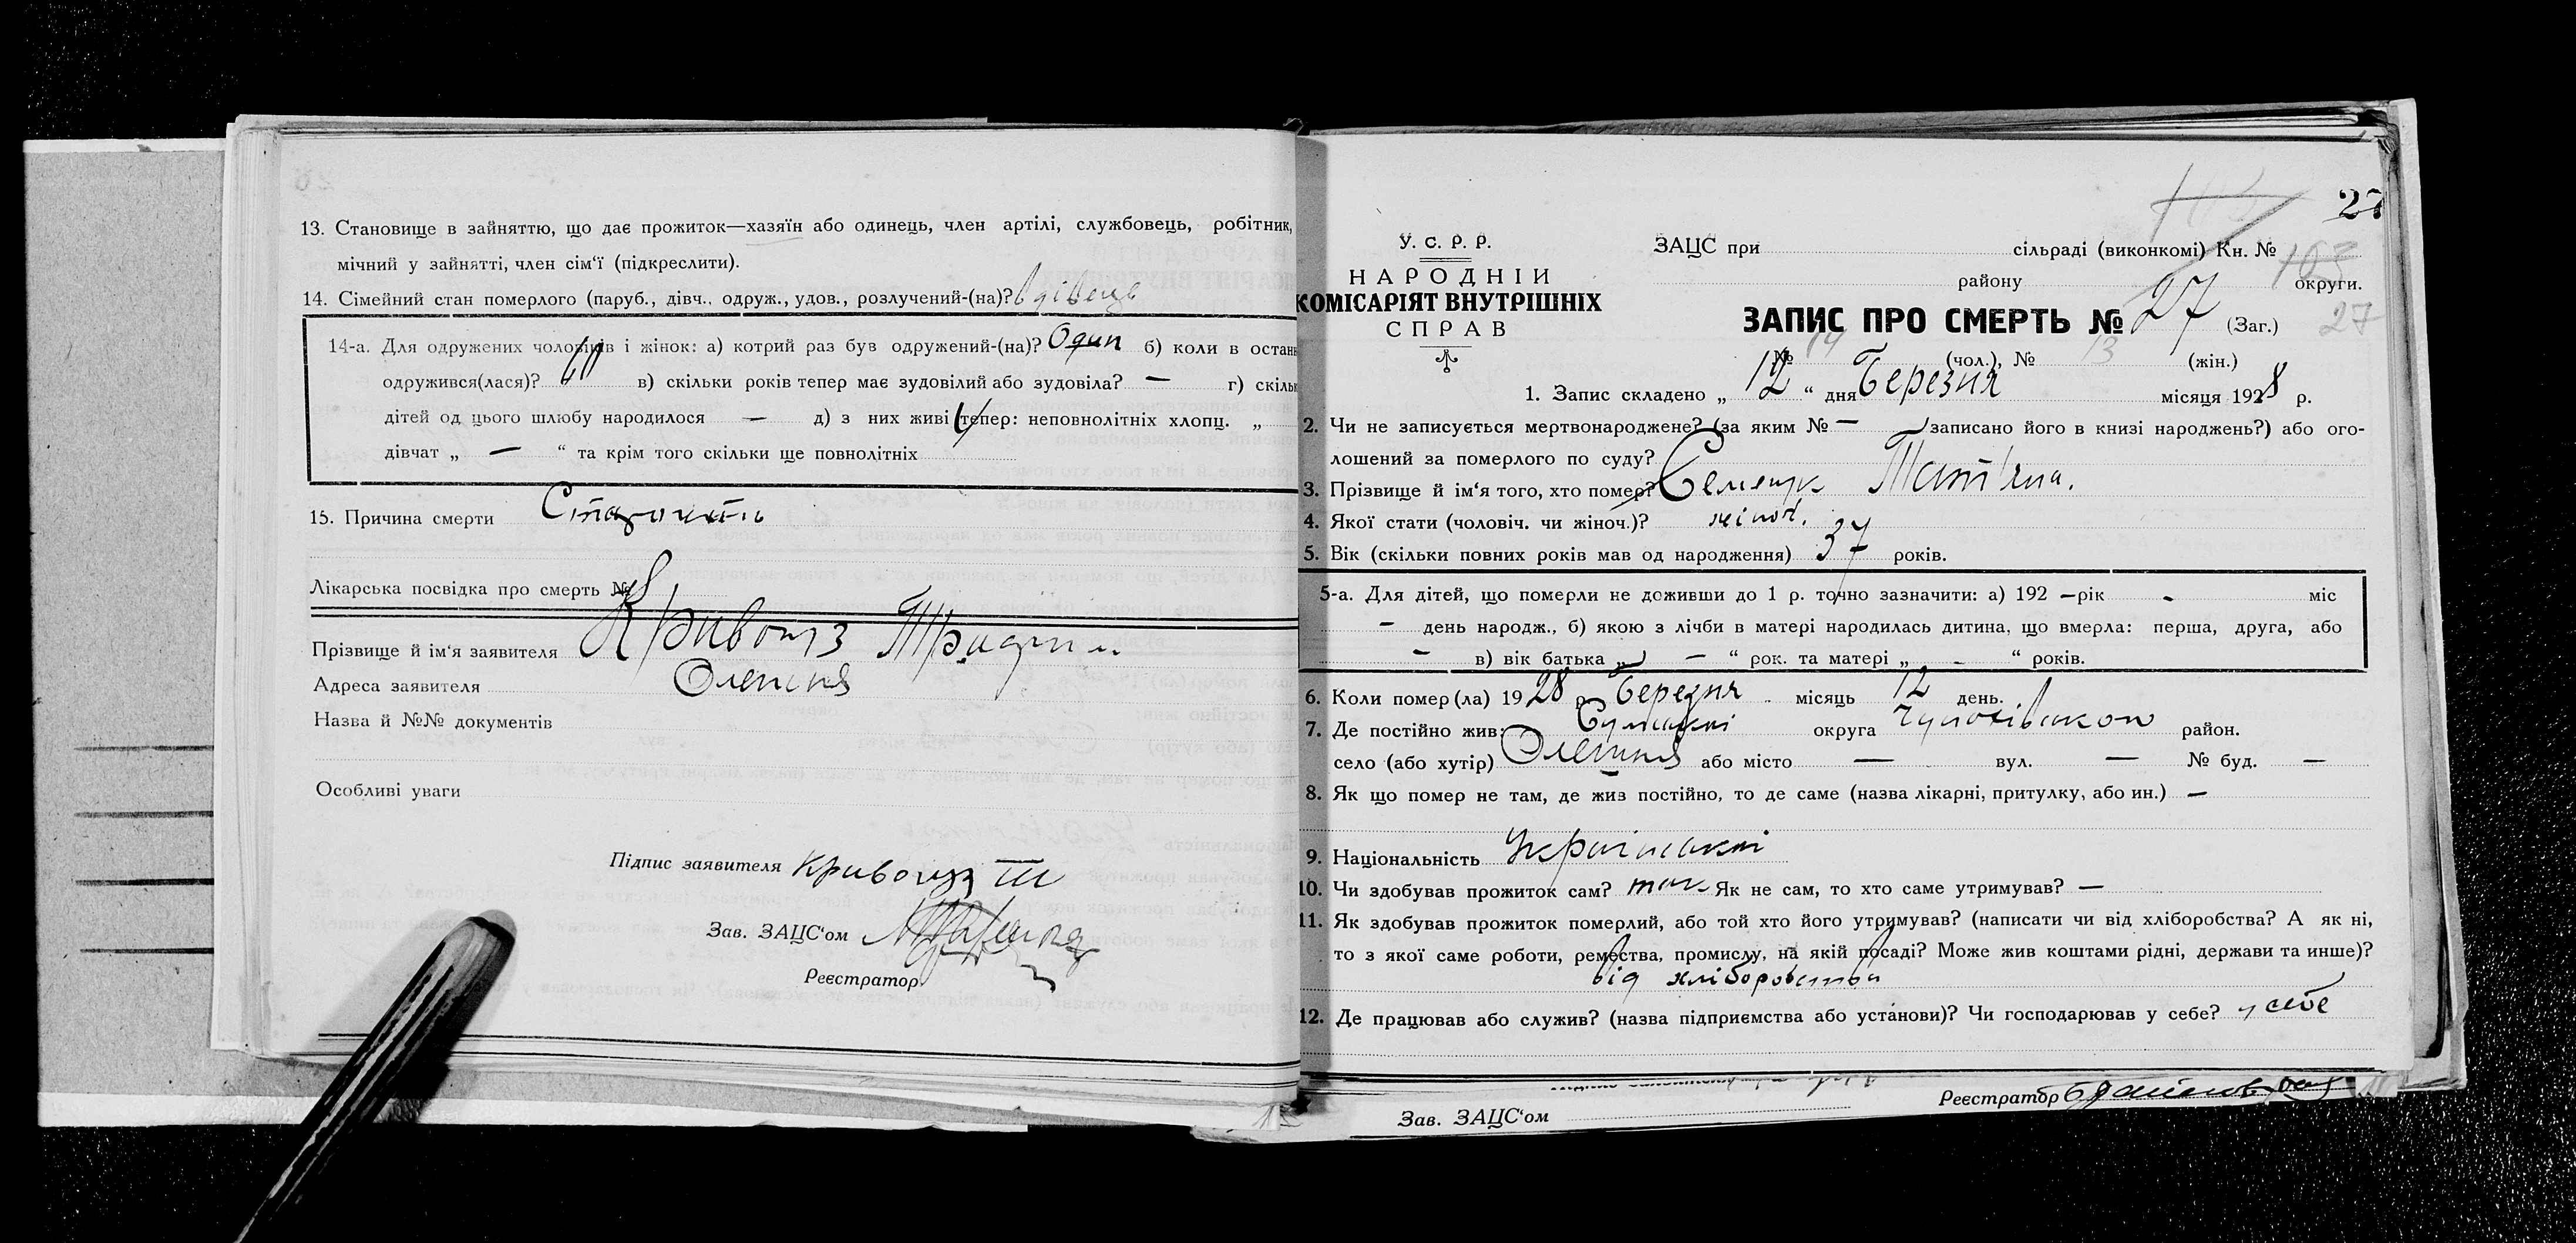 13. Становище в зайняттю, що дає прожиток—хазяїн або одинець, член артілі, службовець, робітник,
мічний у зайнятті, член сім‘ї (підкреслити).
14. Сімейний стан померлого (паруб., дівч., одруж., удов., розлучений-(на)? вдівець
14-а. Для одружених чоловіків і жінок: а) котрий раз був одружений-(на)? Один б) коли в остан
одружився(лася)? в) скільки років тепер має зудовілий або зудовіла? — г) скільк
дітей од цього шлюбу народилося — д) з них живі тепер: неповнолітніх хлопц. „
дівчат „ — “ та крім того скільки ще повнолітніх
15. Причина смерти Старость
Лікарська посвідка про смерть №
Прізвище й ім‘я заявителя Кривогуз
Адреса заявителя Олешня
Назва й №№ документів
Особливі уваги
Підпис заявителя Кривогуз
Зав. ЗАЦС‘ом
Реєстратор
27
У. С. Р. Р.
НАРОДНІЙ
КОМІСАРІЯТ ВНУТРІШНІХ
СПРАВ
ЗАЦС при сільраді (виконкомі) Кн. № 103
району округи.
ЗАПИС ПРО СМЕРТЬ № 27 (Заг.) 27
№ 14 (чол.), № 13 (жін.)
1. Запис складено „ 12 “ дня Березня місяця 1928 р.
2. Чи не записується мертвонароджене? (за яким № — записано його в книзі народжень?) або ого-
лошений за померлого по суду?
3. Прізвище й ім‘я того, хто помер? Семенук Татʼяна.
4. Якої стати (чоловіч. чи жіноч.)? жіноч.
5. Вік (скільки повних років мав од народження) 37 років.
5-а. Для дітей, що померли не доживши до 1 р. точно зазначити: а) 192 — рік - міс
— день народж., б) якою з лічби в матері народилась дитина, що вмерла: перша, друга, або
— в) вік батька „ — “ рок. та матері „ - “ років.
6. Коли помер(ла) 1928 р. Березня місяць 12 день.
7. Де постійно жив: Сумській округа Чупахівском район.
село (або хутір) Олешня або місто — вул. — № буд. —
8. Як що помер не там, де жив постійно, то де саме (назва лікарні, притулку, або ин.) —
9. Національність Українській
10. Чи здобував прожиток сам? так Як не сам, то хто саме утримував? —
11. Як здобував прожиток померлий, або той хто його утримував? (написати чи від хліборобства? А як ні,
то з якої саме роботи, ремества, промислу, на якій посаді? Може жив коштами рідні, держави та инше)?
від хліборобства
12. Де працював або служив? (назва підприємства або установи)? Чи господарював у себе? у себе
Реєстратор
Зав. ЗАЦС‘ом